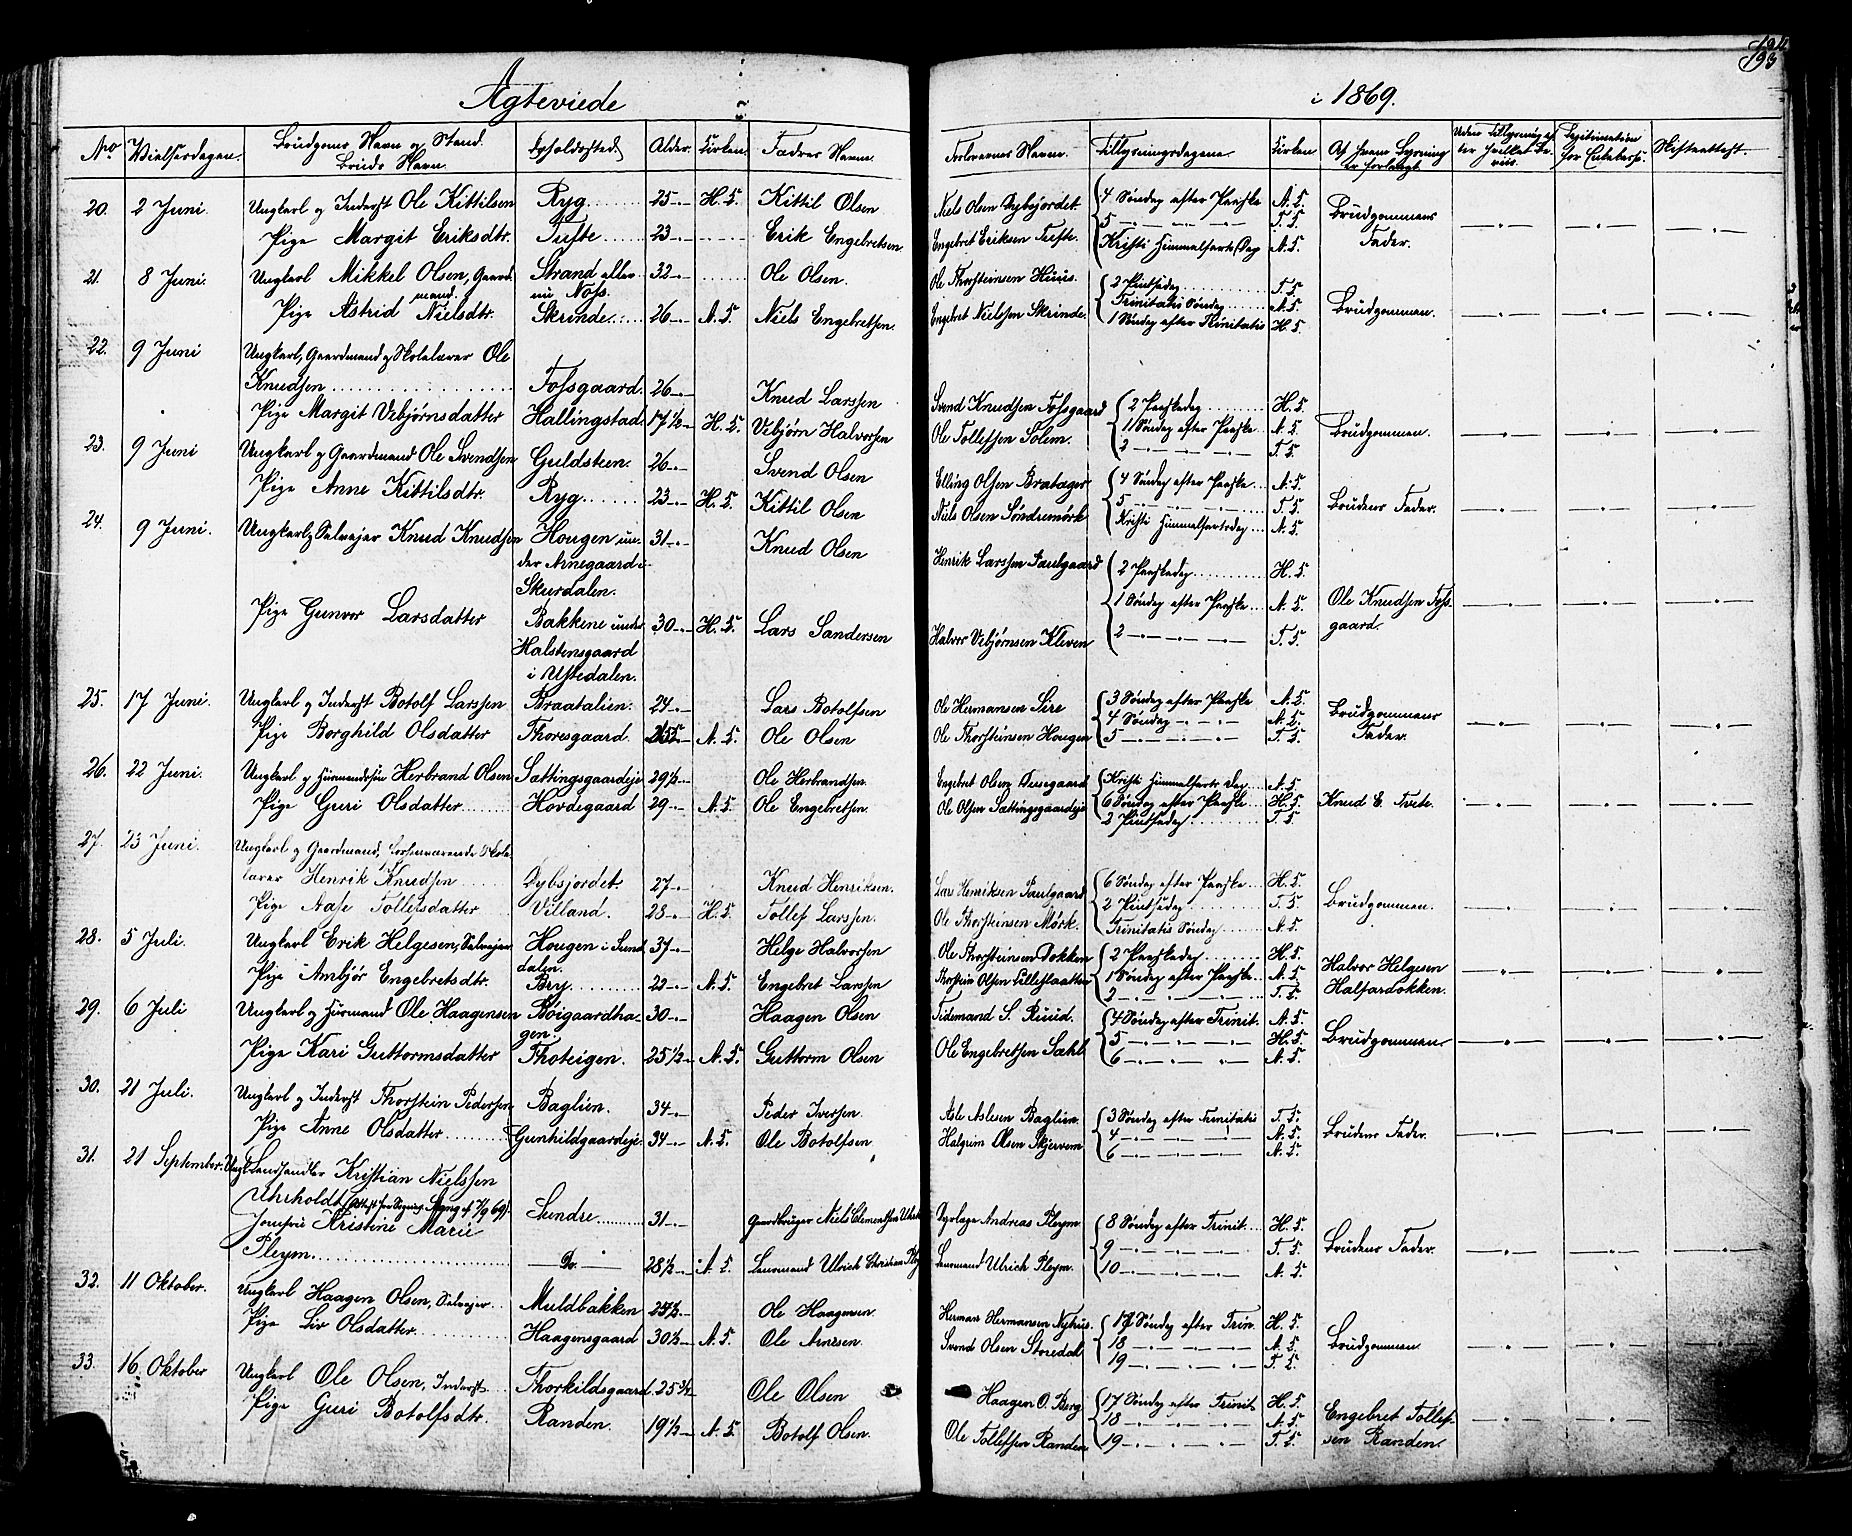 Ægteviede
i 1869.
193
No Vielsesdagen. Brudgoms Navn og Stand. Bruds Navn. Opholdssted Alder. Kirken. Fædres Navne. Forlovernes Navne. Tillysningsdagene. Kirken Af hvem Lysning er forlangt. Uden Tillysning efter hvilket Be-viis. Legitimation for Enkebørn. Skifteattest.
20. 2 Juni. Ungkarl og Inderst Ole Kittilsen Ryg 25 H. K. Kittil Olsen Niels Olsen Dybsjordet 4 Søndag efter Paaske A. K. Brudgommens
Pige Margit Eriksdtr. Tufte 23 Erik Engebretsen Engebret Eriksen Tufte. 5 T. K. Fader.
Kristi Himmelfarts Dag N. K.
21. 8 Juni. Ungkarl Mikkel Olsen, Gaard- Strand eller 32 Ole Olsen. Ole Thorsteinsen Huus. 2 Pintsedag T. K.
mand. nu Næss. Trinitatis Søndag A. K. Brudgommen.
Pige Astrid Nielsdtr. Skrinde 26 N. K. Niels Engebretsen. Engebret Nielssen Skrinde. 1 Søndag efter Trinitatis H. K.
22. 9 Juni Ungkarl, Gaardmand og Skolelærer Ole
Knudsen Fossgaard. 26 Knud Larssen Svend Knudssen Fossgaard 2 Paaskedag H. K.
Pige Margit Vebjørnsdatter Hallingstad. 17 1/2 H. K. Vebjørn Halvorsen Ole Tollefssen Solem. 1 Søndag efter Paaske A. K. Brudgommen.
2 T. K.
23. 9 Juni Ungkarl og Gaardmand Ole Svendsen Guldsteen. 26 Svend Olsen Elling Olsen Bratager 4 Søndag efter Paaske A. K.
Pige Anne Kittilsdtr. Ryg 23 H. K. Kittil Olsen Niels Olsen Søndremørk 5 T. K. Brudens Fader.
Kristi Himmelfartsdag N. K.
24. 9 Juni. Ungkarl og Selvejer Knud Knudsen Hougen un- 31 Knud Olsen Henrik Larssen Paulgaard 2 Paaskedag H. K.
der Arnegaard i
Skurdalen.
Pige Gunvor Larsdatter Bakkene under 30 H. K. Lars Sandersen 1 Søndag efter Paaske A. K. Ole Knudsen Foss-
Halstensgaard Halvor Vebjørnsen Kleven 2 T. K. gaard.
i Ustedalen.
25. 17 Juni. Ungkarl og Inderst Botolf Larssen Braatalien. 24 Lars Botolfsen Ole Hermansen Sire 3 Søndag efter Paaske A. K. Brudgommens
Pige Borghild Olsdatter Thoresgaard. N. K. Ole Olsen Ole Thorsteinsen Hougen 4 Søndag N. K. Fader.
5 T. K.
26. 22 Juni. Ungkarl og Huusmandssøn Herbrand Olsen Sattingsgaardeje 29 1/2 Ole Herbrandsen. Engebret Olsen Kristi Himmelfarts Dag A. K.
Pige Guri Olsdatter Hovdegaard 29 N. K. Ole Engebretsen. Ole Olsen Sattingsgaardeje 6 Søndag efter Paaske H. K. Knud E. Tvete.
2 Pintsedag T. K.
27. 23 Juni. Ungkarl og Gaardmand, forhenværende Skole-
lærer Henrik Knudsen Dybsjordet. 27 Knud Henriksen. Lars Henriksen Paulgaard 6 Søndag efter Paaske H. K.
Pige Aase Tollefsdatter Villand. 28 H. K. Tollef Larssen. Ole Thorsteinsen Mørk. 2 Pintsedag T. K. Brudgommen.
Trinitatis Søndag A. K.
28. 5 Juli. Ungkarl Erik Helgesen, Selvejer Hougen i Sund- 37 Helge Halvorsen Ole Thorsteinsen Dokken 2 Paaskedag H. K.
dalen. Halvor Helgesen
Pige Ambjør Engebretsdtr. Bry 22 N. K. Engebret Larssen Thorstein Olsen Lilleslaatten 1 Søndag efter Paaske A. K. Halfardokken.
2 T. K.
29. 6 Juli Ungkarl og Huusmand Ole Haagensen Bøigaardha- 30 Haagen Olsen Tidemand S. Ruud. 4 Søndag efter Trinit. A. K.
gen.
Pige Kari Guttormsdatter Thoteigen. 25 1/2 N. K. Guttorm Olsen Ole Engebretsen Sæhl 5 H. K. Brudgommen
6 N. K.
30. 21 Juli. Ungkarl og Inderst Thorstein Pedersen Baglien. 34 Peder Iversen. Asle Aslesen Baglien 3 Søndag efter Trinitatis T. K.
Pige Anne Olsdatter Gunhildgaardeje. 34 N. K. Ole Botolfsen Halgrim Olsen Skjervem 4 A. K. Brudens Fader.
6 N. K.
31. 21 September. Ungk. Landhandler Kristian Nielssen
Uhrholdt
Jomfru Kristine Marie Sundre 31 Gaardbruger Niels Clementsen Dyrlæge Andreas Pleym 8 Søndag efter Trinit H. K.
Pleym Do. 28 1/2 N. K. Lensmand Ulrich Christian Lensmand Ulrich Pleym. 9 T. K. Brudens Fader.
10 N. K.
32. 11 Oktober. Ungkarl Haagen Olsen, Selvejer Muldbakken Ole Haagensen Herman Hermansen Nyhus. 17 Søndag efter Trin. H. K.
Pige Liv Olsdatter Haagensgaard 30 1/2 N. K. Ole Arnesen. Svend Olsen Storedal 18 A. K. Brudgommen
19 T. K.
33. 16 Oktober Ungkarl Ole Olsen, Inderst Thorkildsgaard 25 3/4 Ole Olsen Haagen O. Berg 17 Søndag efter Trinit H. K.
Pige Guri Botolfsdtr. Randen. 19 1/2 N. K. Botolf Olsen. Ole Tollefssen Randen 18 A. K. Engebret Tollef-
19 T. K. sen Randen.